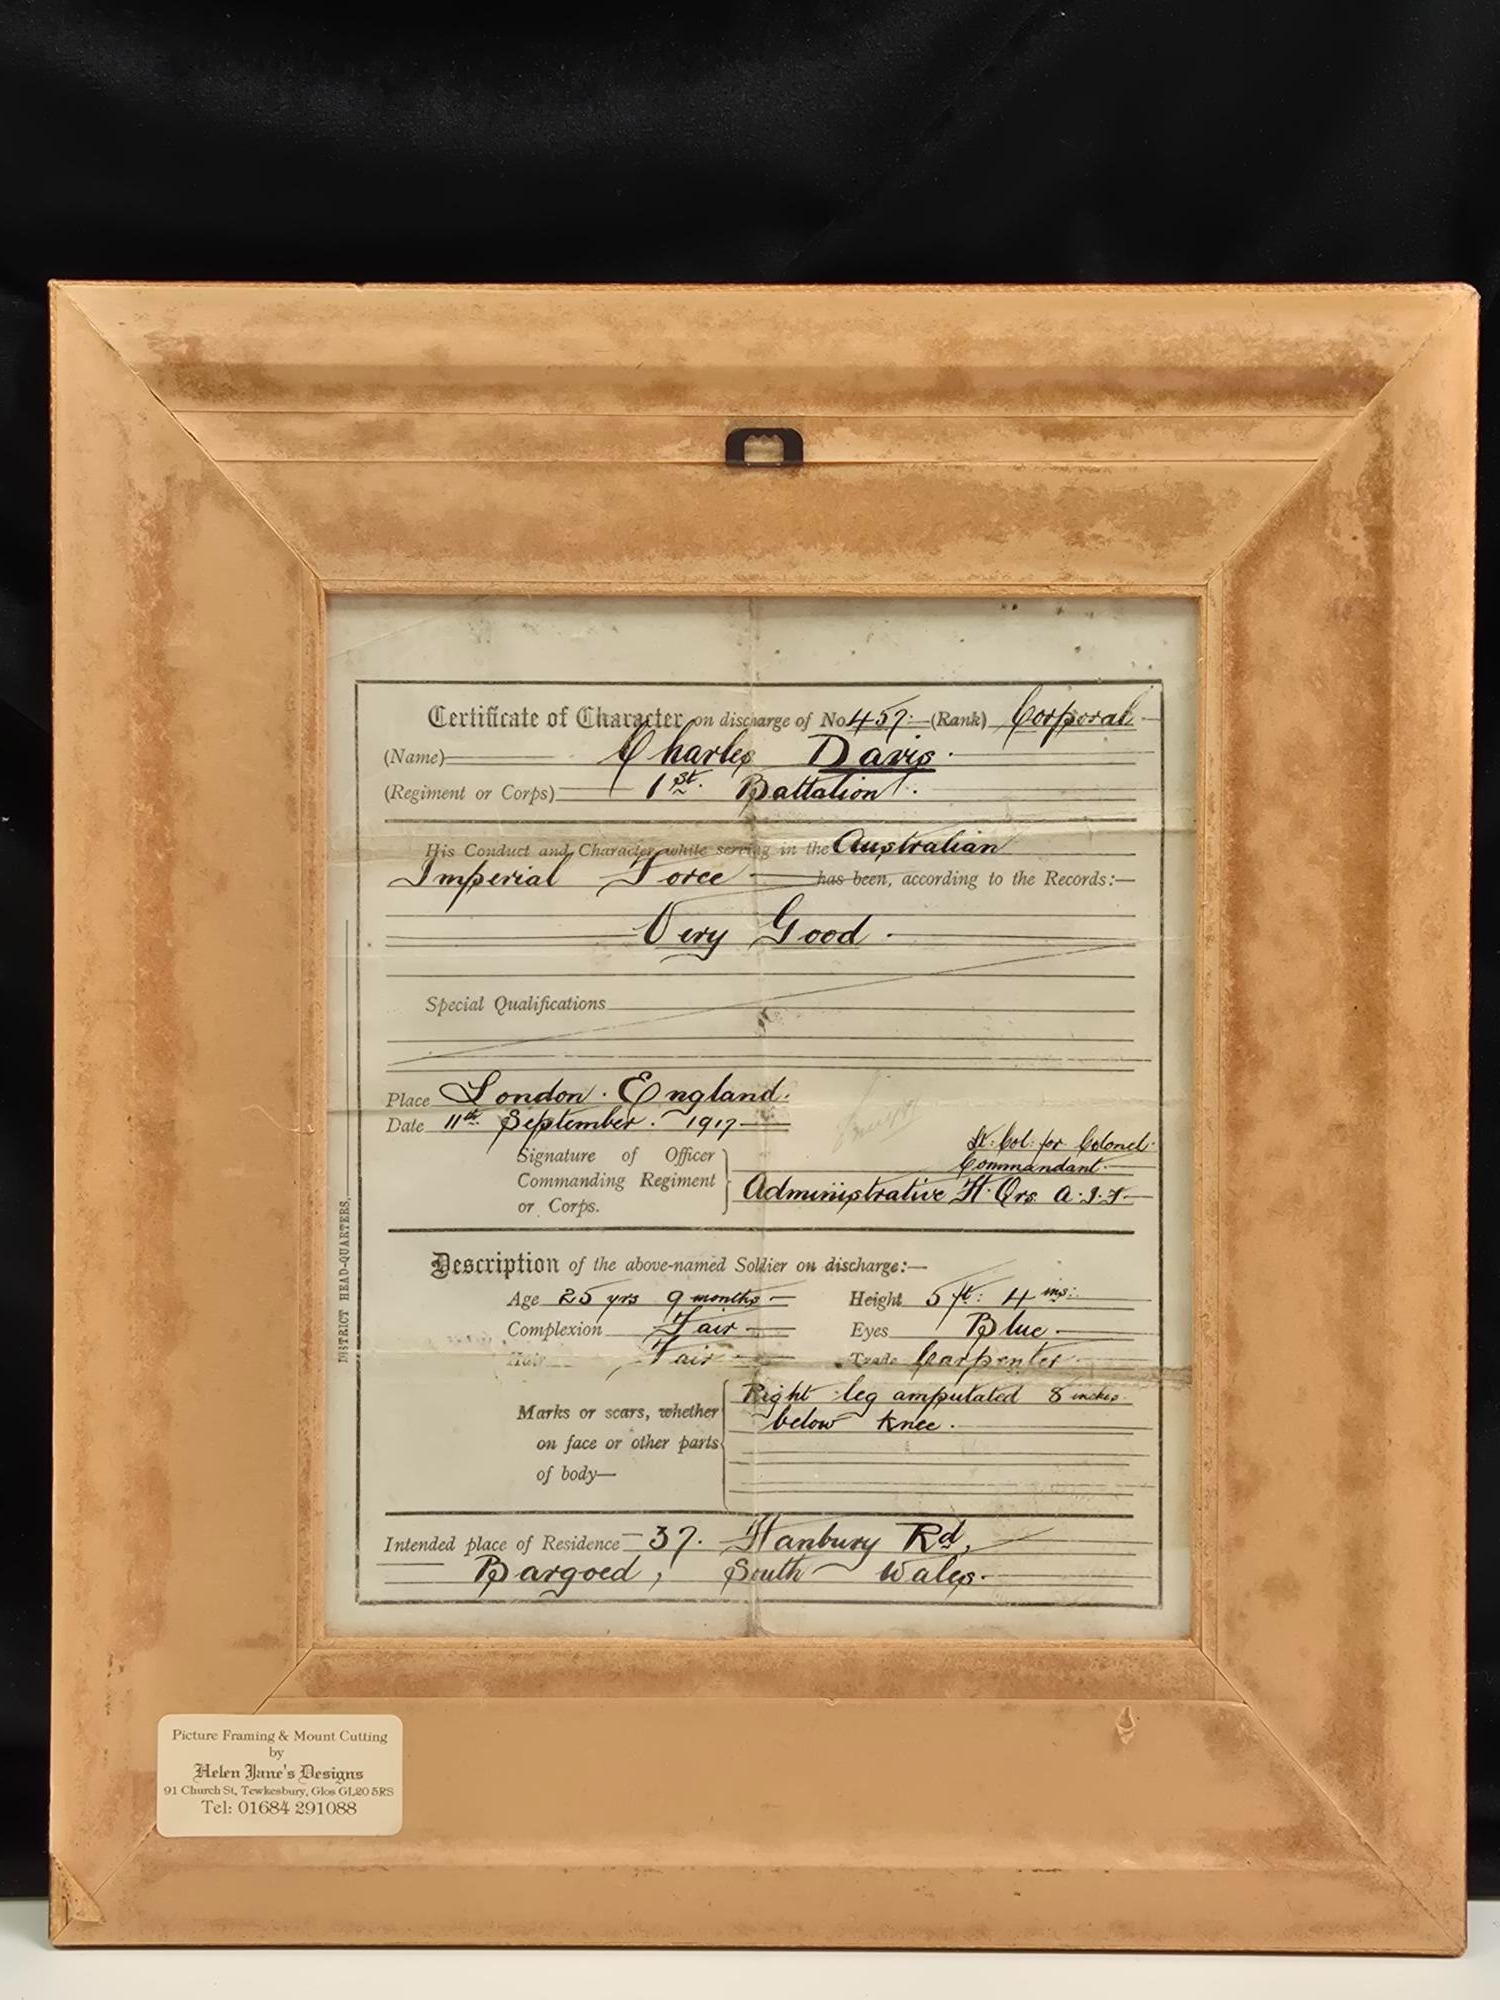 Certificate of Character on discharge of No. 457. (Rank) Corporal
(Name) Charles Davis.
(Regiment or Corps) 1st. Battalion.
His Conduct and Character while serving in the Australian
Imperial Force has been, according to the Records:—
Very Good.
Special Qualifications
Place London. England.
Date 11th September. 1917
Lt. Col. for Colonel
Commandant.
Signature of Officer
Commanding Regiment
or Corps.
Administrative H. Qrs. A.I.F.
DISTRICT HEAD-QUARTERS,
Description of the above-named Soldier on discharge:—
Age 25 yrs 9 months Height 5 ft: 4 ins:
Complexion Fair Eyes Blue
Hair Fair Trade Carpenter
Marks or scars, whether
on face or other parts
of body—
Right leg amputated 8 inches
below knee.
Intended place of Residence 37. Hanbury Rd,
Bargoed, South Wales.
Picture Framing & Mount Cutting
by
Helen Jane's Designs
91 Church St, Tewkesbury, Glos GL20 5RS
Tel: 01684 291088